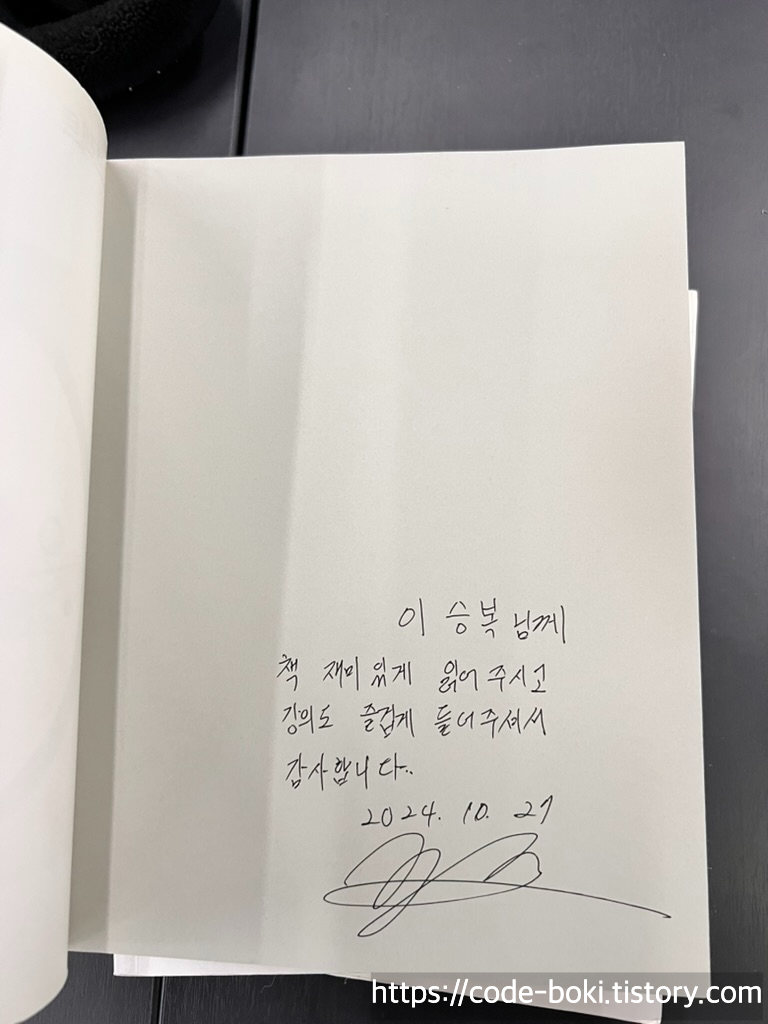 이 승복 님께
책 재미있게 읽어 주시고
강의도 즐겁게 들어주셔서
감사합니다..
2024. 10. 27
https://code-boki.tistory.com